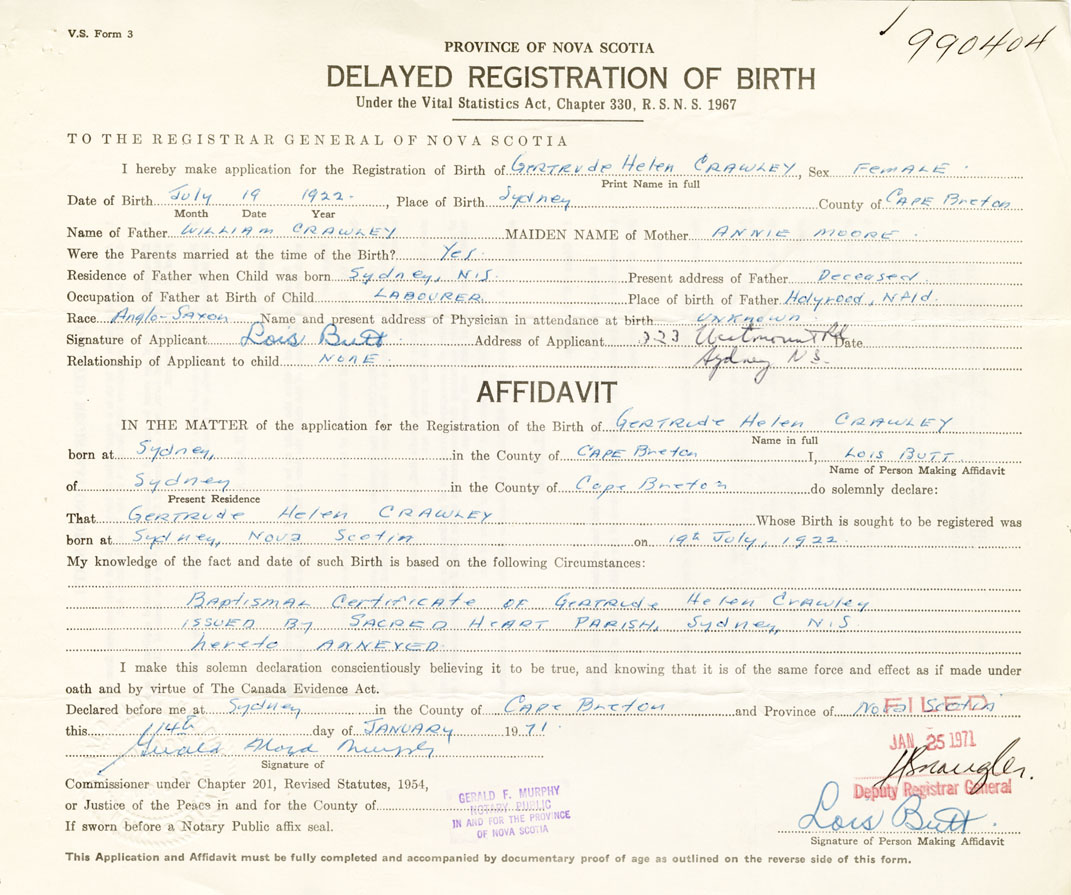 V.S. Form 3
990404
PROVINCE OF NOVA SCOTIA
DELAYED REGISTRATION OF BIRTH
Under the Vital Statistics Act, Chapter 330, R.S.N.S. 1967
TO THE REGISTRAR GENERAL OF NOVA SCOTIA
I hereby make application for the Registration of Birth of Gertrude Helen Crawley, Sex Female
Print Name in full
Date of Birth July 19 1922, Place of Birth Sydney County of Cape Breton
Month Date Year
Name of Father William Crawley MAIDEN NAME of Mother Annie Moore
Were the Parents married at the time of the Birth? Yes
Residence of Father when Child was born Sydney, N.S. Present address of Father Deceased
Occupation of Father at Birth of Child Labourer Place of birth of Father Holyrood, Nfld.
Race Anglo-Saxon Name and present address of Physician in attendance at birth Unknown
Signature of Applicant Lois Butt Address of Applicant 323 Westmount Rd Date
Relationship of Applicant to child None Sydney N.S.
AFFIDAVIT
IN THE MATTER of the application for the Registration of the Birth of Gertrude Helen Crawley
Name in full
born at Sydney, in the County of Cape Breton I, Lois Butt
Name of Person Making Affidavit
of Sydney in the County of Cape Breton do solemnly declare:
Present Residence
That Gertrude Helen Crawley Whose Birth is sought to be registered was
born at Sydney, Nova Scotia on 19th July, 1922.
My knowledge of the fact and date of such Birth is based on the following Circumstances:
Baptismal Certificate of Gertrude Helen Crawley
issued by Sacred Heart Parish, Sydney, N.S.
hereto annexed.
I make this solemn declaration conscientiously believing it to be true, and knowing that it is of the same force and effect as if made under
oath and by virtue of The Canada Evidence Act.
Declared before me at Sydney in the County of Cape Breton and Province of Nova Scotia
FILED
this 14th day of January 1971.
JAN 25 1971
Signature of
Commissioner under Chapter 201, Revised Statutes, 1954,
Deputy Registrar General
or Justice of the Peace in and for the County of
GERALD F. MURPHY
NOTARY PUBLIC
IN AND FOR THE PROVINCE
OF NOVA SCOTIA
Lois Butt.
If sworn before a Notary Public affix seal.
Signature of Person Making Affidavit
This Application and Affidavit must be fully completed and accompanied by documentary proof of age as outlined on the reverse side of this form.